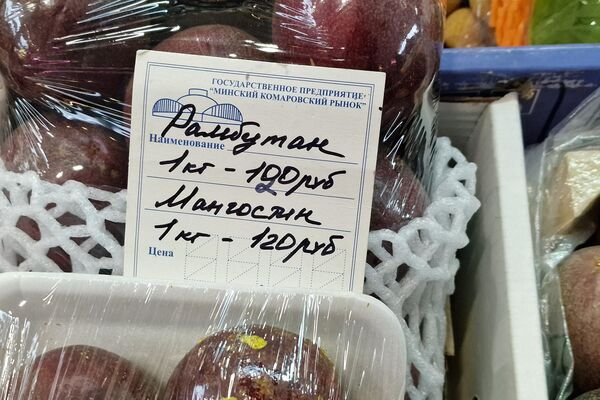 ГОСУДАРСТВЕННОЕ ПРЕДПРИЯТИЕ
"МИНСКИЙ КОМАРОВСКИЙ РЫНОК"
Рамбутан
Наименование
1 кг - 120 руб
Мангостин
1 кг - 120 руб
Цена